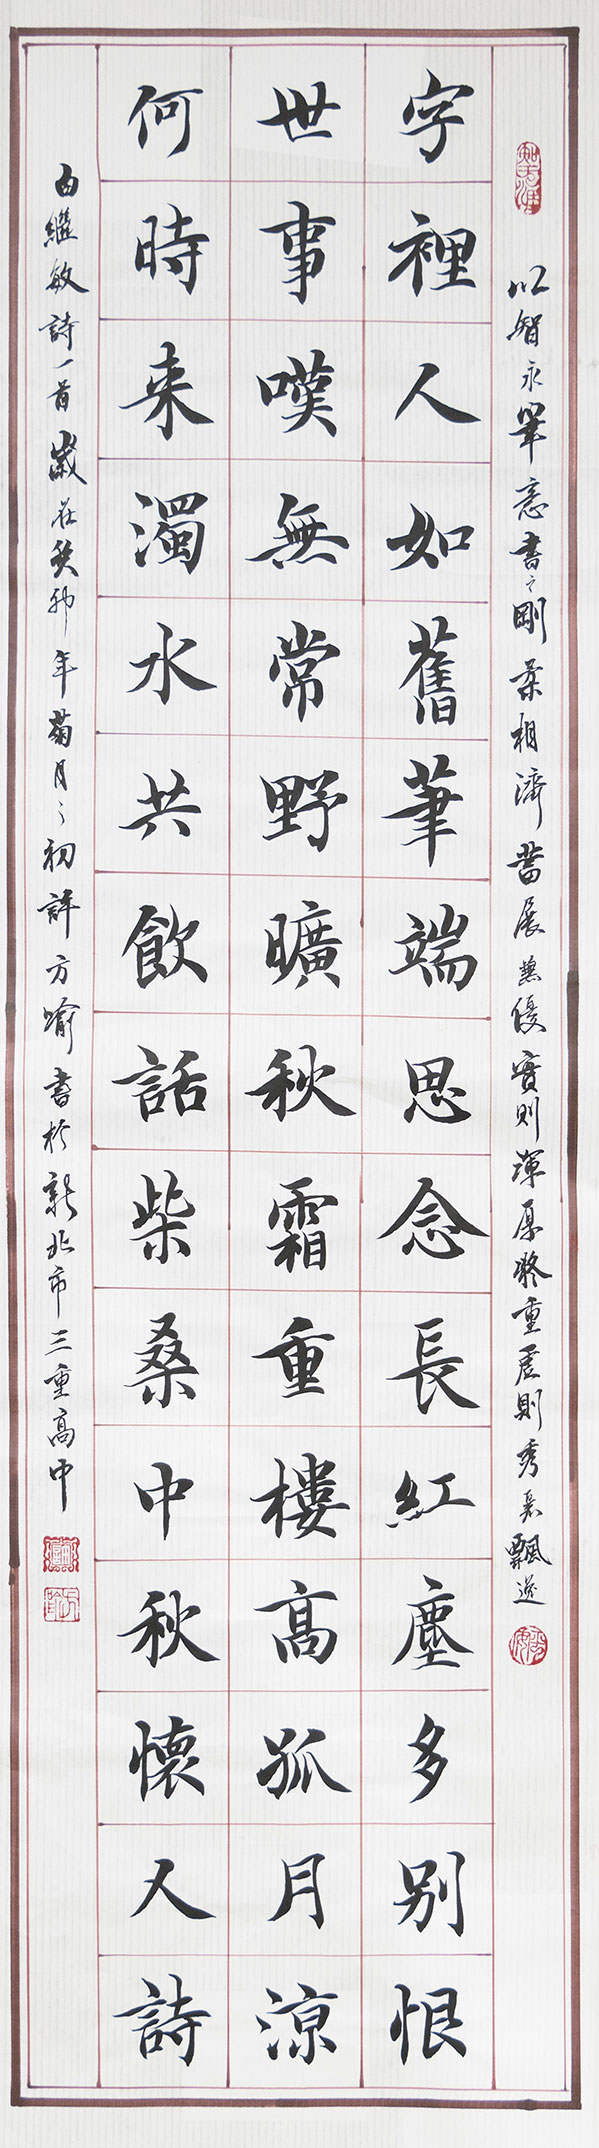 以智永筆意書之剛柔相濟蓄展兼優實則渾厚凝重虛則秀飄逸
字裡人如舊筆端思念長紅塵多別恨
世事嘆無常野曠秋霜重樓高孤月涼
何時来濁水共飲話柴桑中秋懷人詩
白繼敏詩一首歲在癸卯年菊月之初許方喻書於新北市三重高中